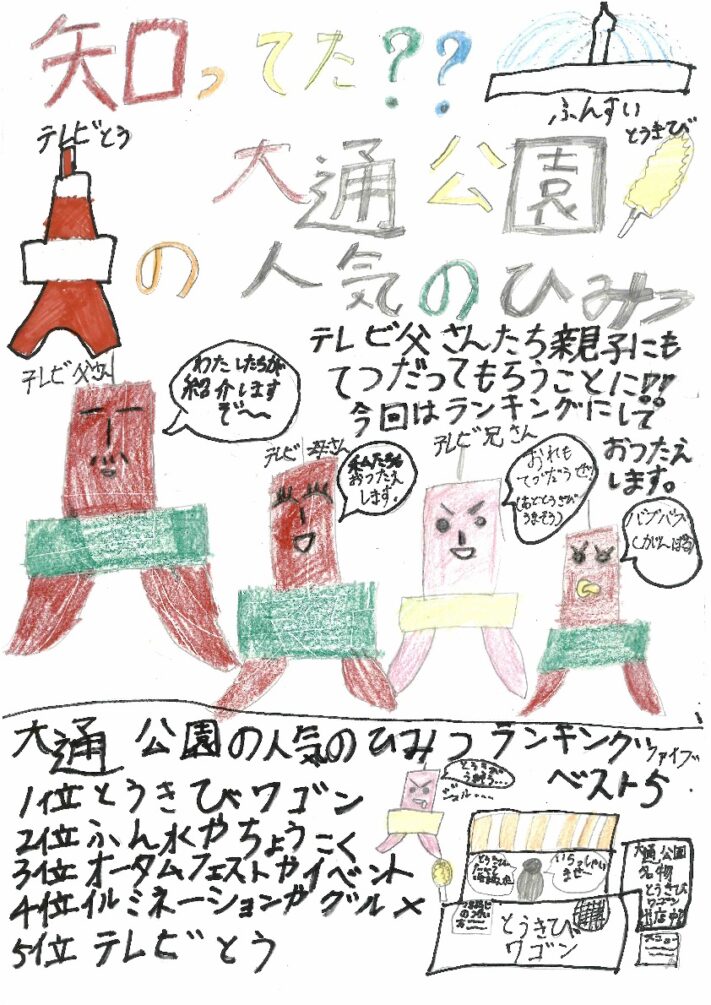 知ってた??
ふんすい
テレビとう
とうきび
大通公園
の人気のひみつ
テレビ父さんたち親子にも
てつだってもらうことに!!
今回はランキングにして
おつたえ
します。
テレビ父さん
わたしたちが
紹介します
ぞ〜
テレビ母さん
私たちも
おつたえ
します。
テレビ兄さん
おれも
てつだうぜ!
(おととうきび
うまそう)
バブバブ
大通公園の人気のひみつランキング
ベスト5
ファイブ
1位とうきびワゴン
2位ふん水やちょうこく
3位オータムフェストやイベント
4位イルミネーションやグルメ
5位テレビとう
いらっしゃい
ませ〜
とうきび
ワゴン
大通公園
名物
とうきび
ワゴン
出店中
メニュー